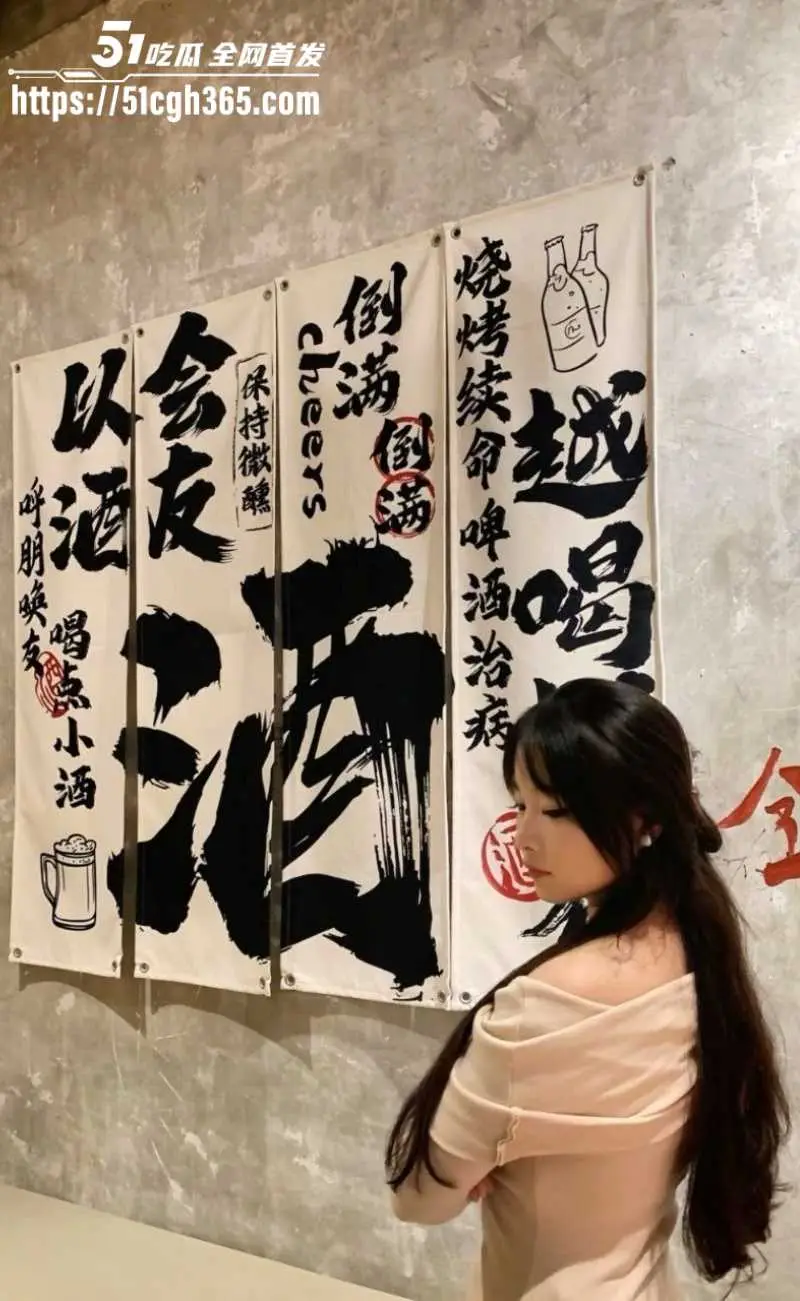 51吃瓜 全网首发
https://51cgh365.com
以酒
会友
呼朋唤友
喝点小酒
保持微醺
倒满
倒满
cheers
酒
烧烤续命啤酒治病
越喝
酒
酒